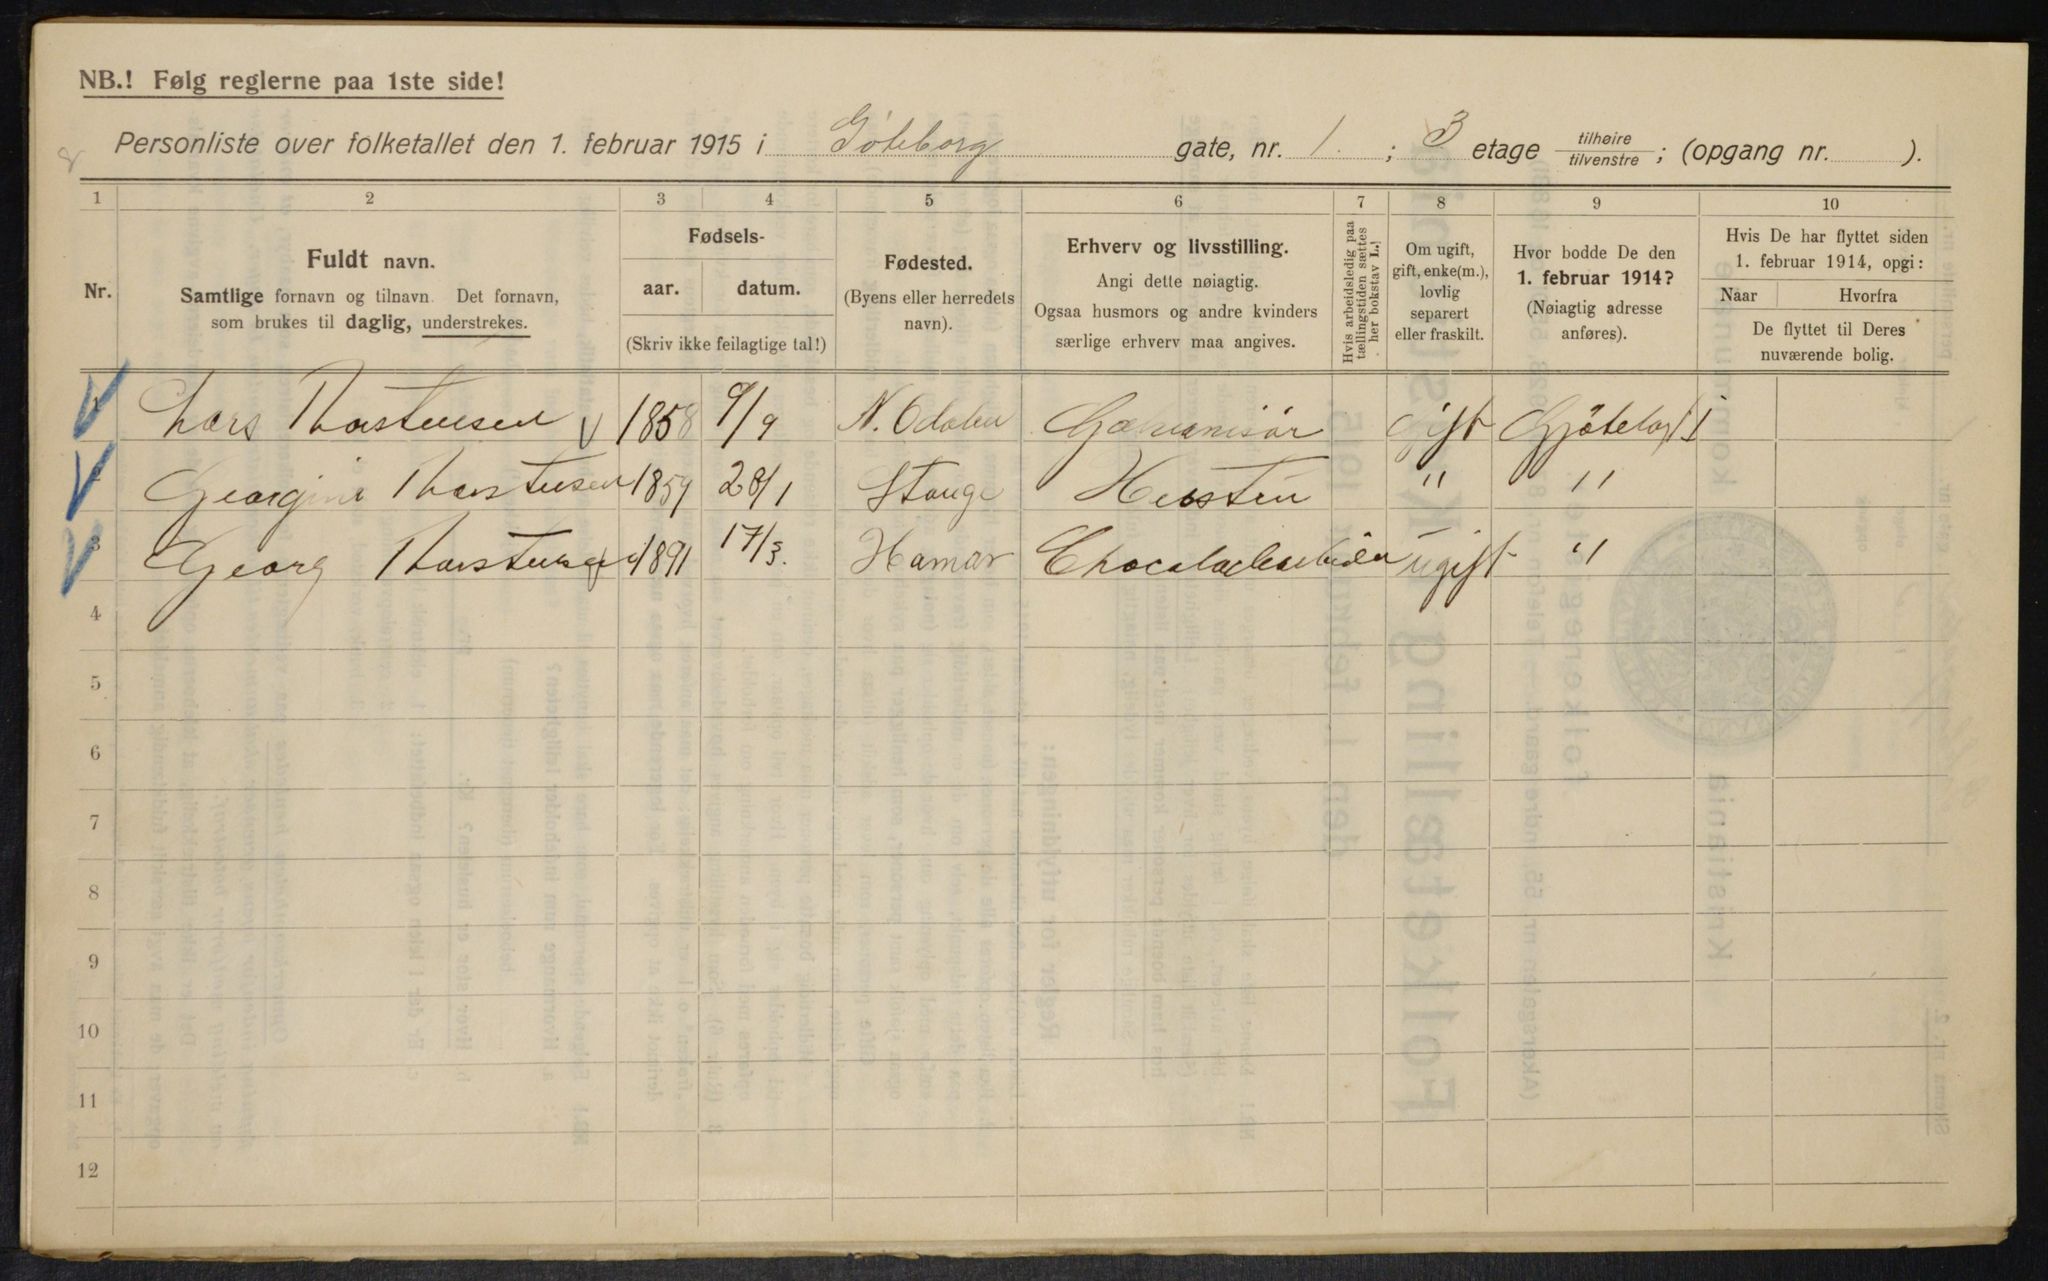 NB.! Følg reglerne paa 1ste side!
Personliste over folketallet den 1. februar 1915 i Göteborg gate, nr. 1. ; 3 etage tilhøire / tilvenstre ; (opgang nr. ).
1 2 3 4 5 6 7 8 9 10
Nr.
Fuldt navn.
Samtlige fornavn og tilnavn. Det fornavn,
som brukes til daglig, understrekes.
Fødsels-
aar. datum.
(Skriv ikke feilagtige tal!)
Fødested.
(Byens eller herredets
navn).
Erhverv og livsstilling.
Angi dette nøiagtig.
Ogsaa husmors og andre kvinders
særlige erhverv maa angives.
Hvis arbeidsledig paa
tællingstiden sættes
her bokstav L.!
Om ugift,
gift, enke(m.),
lovlig
separert
eller fraskilt.
Hvor bodde De den
1. februar 1914?
(Nøiagtig adresse
anføres).
Hvis De har flyttet siden
1. februar 1914, opgi:
Naar Hvorfra
De flyttet til Deres
nuværende bolig.
1 Lars Thorstensen 1858 9/9 N. Odalen Galvanisør gift Gjøteborg 1
2 Georgine Thorstensen 28/1 Stange Husstru " "
3 Georg Thorstensen 1891 17/3. Hamar Chocoladearbeider ugift "
4
5
6
7
8
9
10
11
12